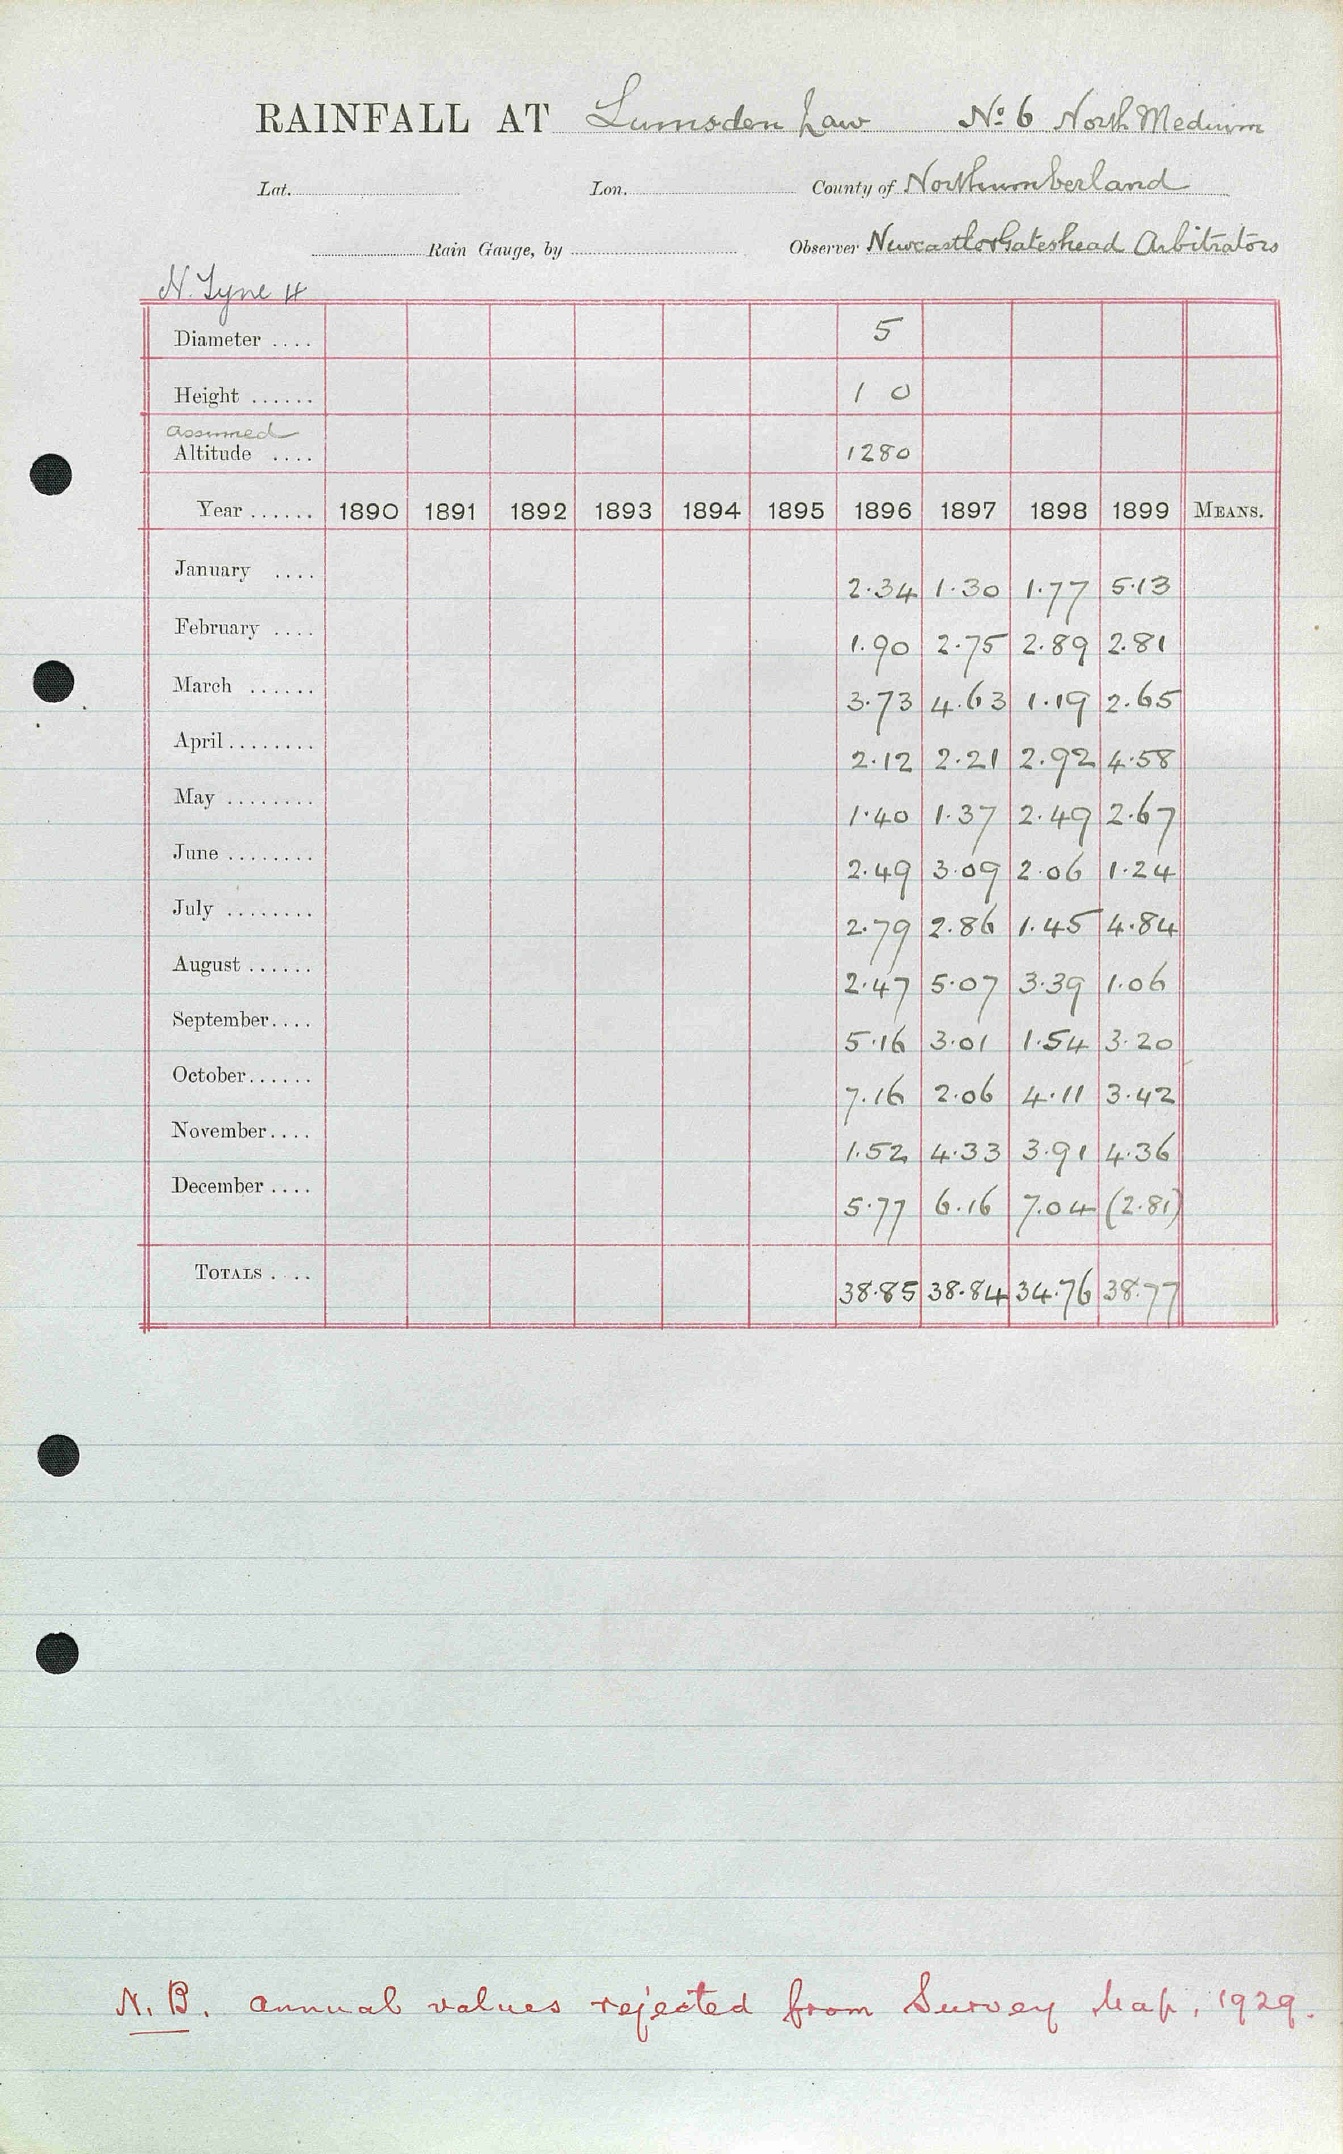 RAINFALL AT Lumsden Law No 6 North Medium
Lat. Lon. County of Northumberland
Rain Gauge, by Observer Newcastle & Gateshead Arbitrators
N. Tyne 4
Diameter .... 5
Height ...... 1 0
assumed
Altitude .... 1280
Year ...... 1890 1891 1892 1893 1894 1895 1896 1897 1898 1899 MEANS.
January .... 2.34 1.30 1.77 5.13
February .... 1.90 2.75 2.89 2.81
March ...... 3.73 4.63 1.19 2.65
April ........ 2.12 2.21 2.92 4.58
May ........ 1.40 1.37 2.49 2.67
June ........ 2.49 3.09 2.06 1.24
July ........ 2.79 2.86 1.45 4.84
August ...... 2.47 5.07 3.39 1.06
September.... 5.16 3.01 1.54 3.20
October...... 7.16 2.06 4.11 3.42
November.... 1.52 4.33 3.91 4.36
December .... 5.77 6.16 7.04 (2.81)
TOTALS .... 38.85 38.84 34.76 38.77
N.B. annual values rejected from Survey Map, 1929.